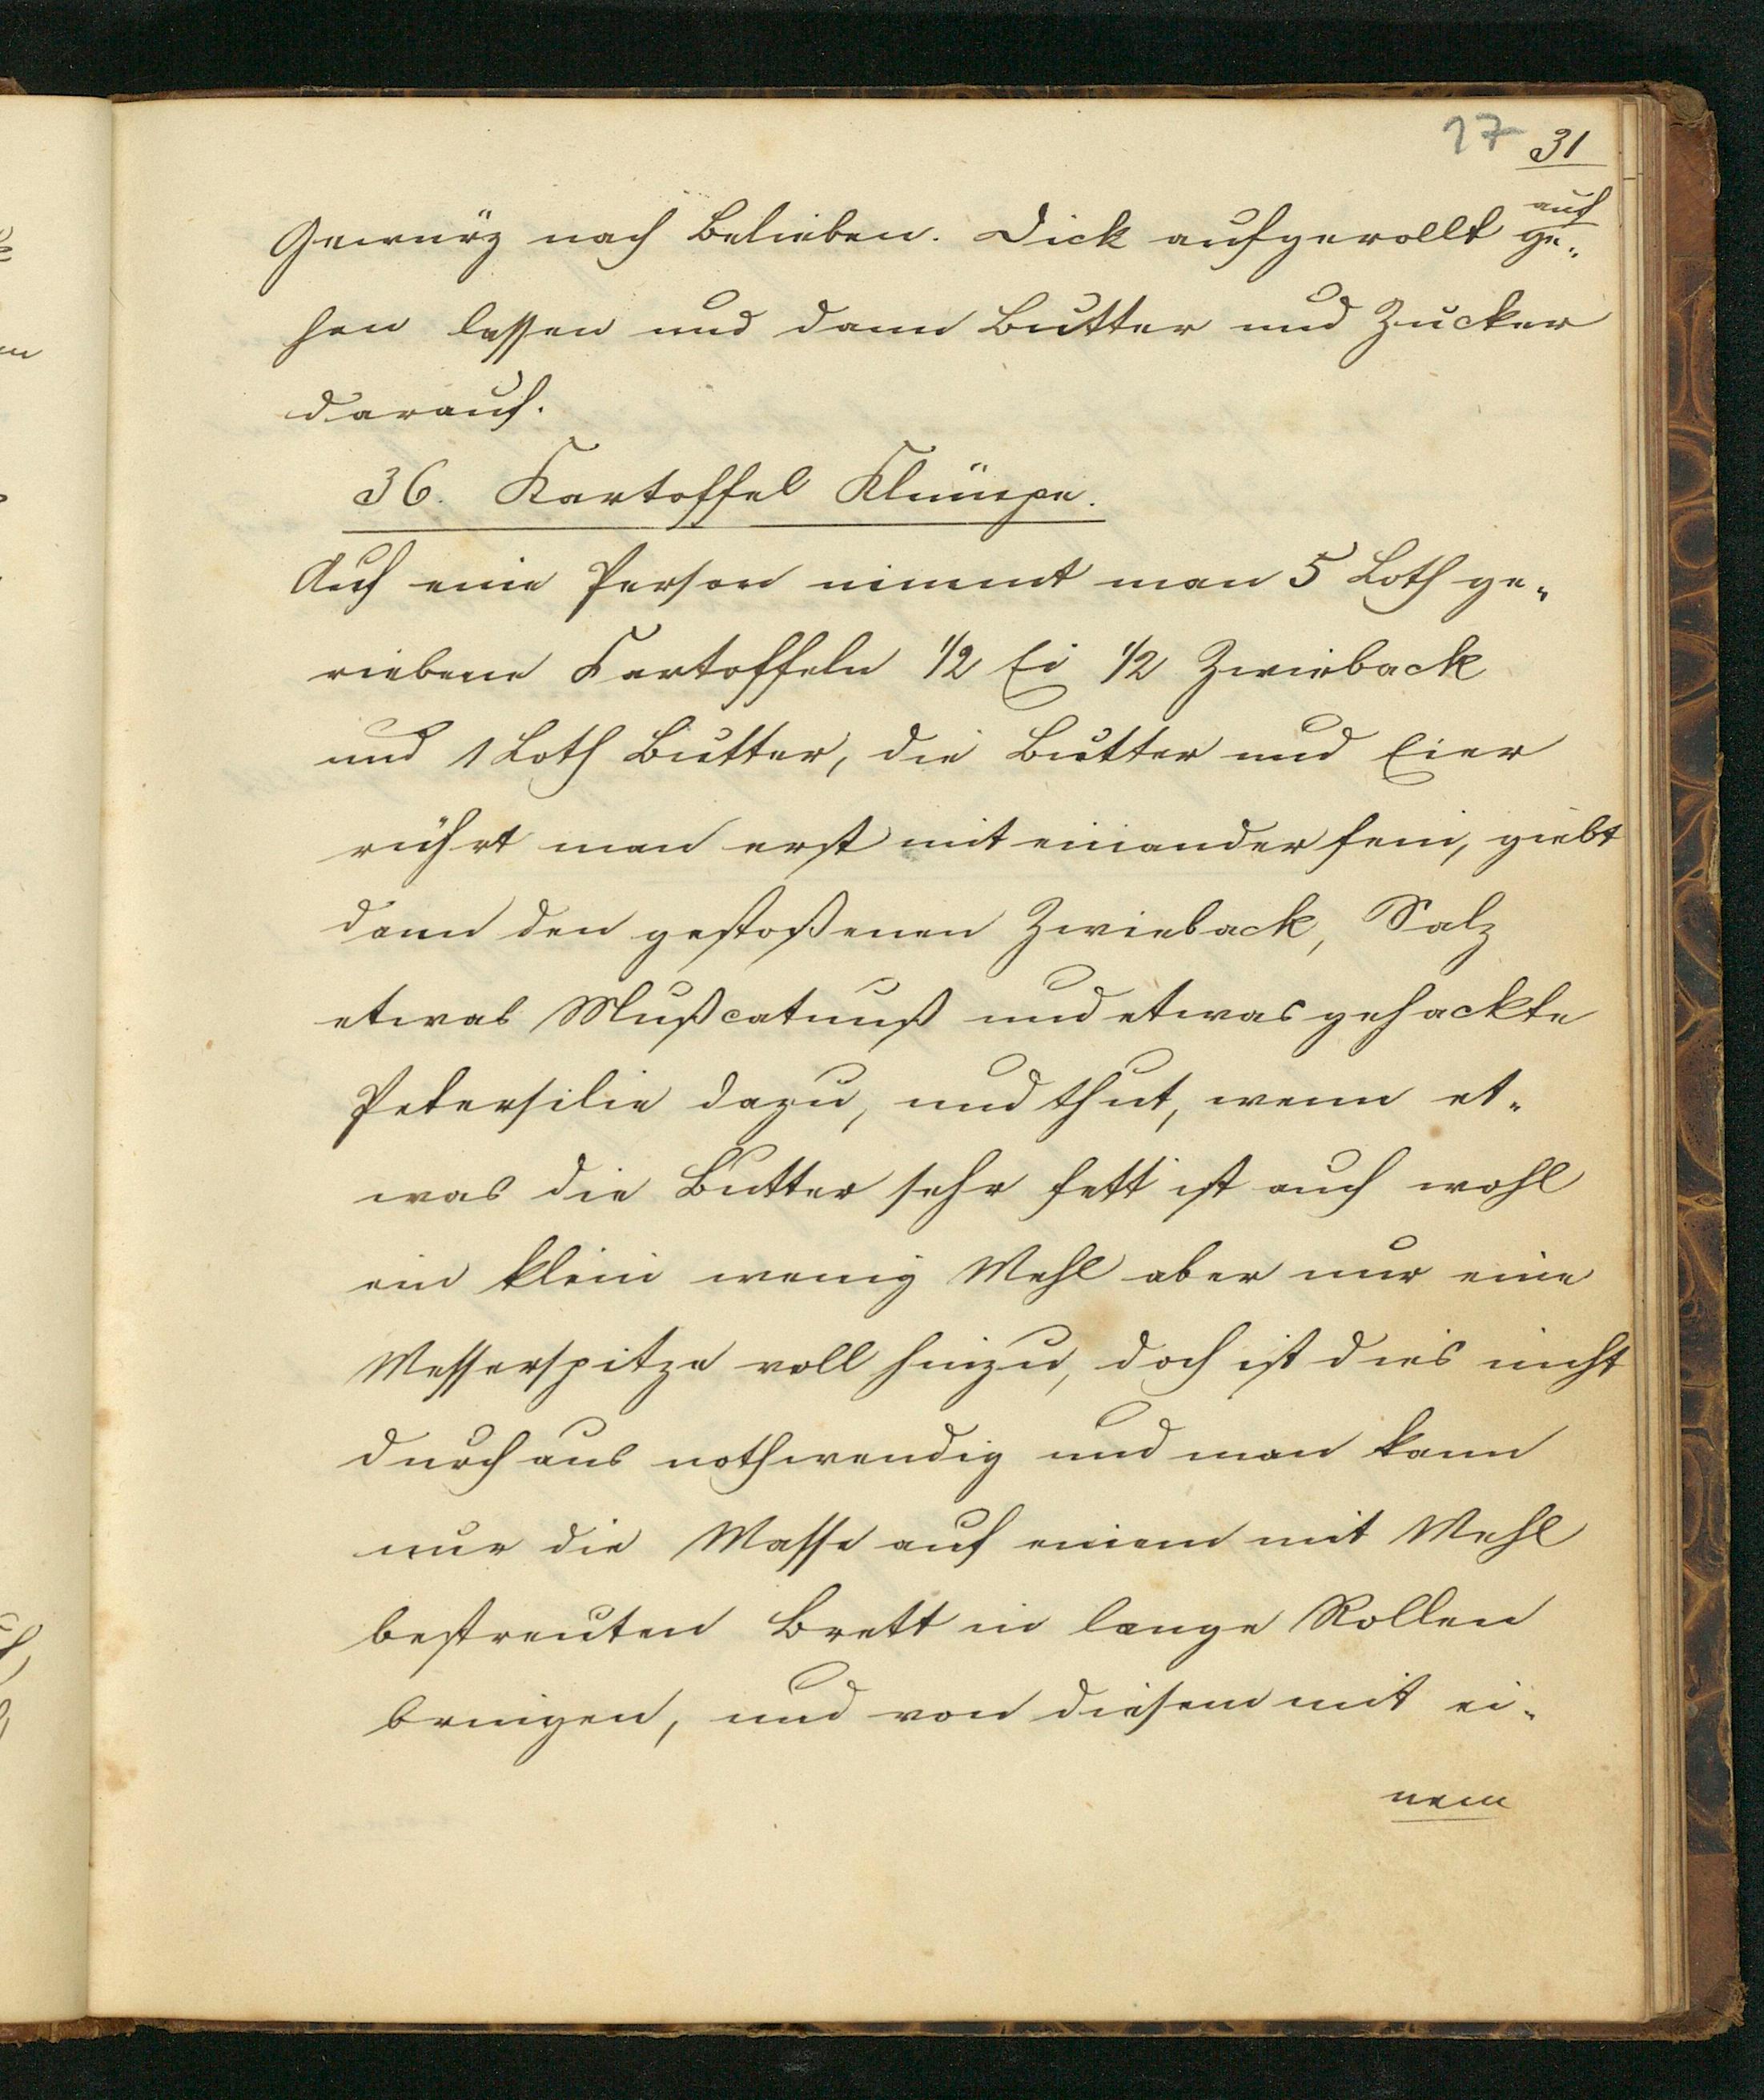 17 31
auf
Gewürz nach Belieben. Dick aufgerollt ge-
hen lassen und dann Butter und Zucker
darauf.
36. Kartoffel Klümpe.
Auf eine Person nimmt man 5 Loth ge-
riebene Kartoffeln 1/2 Ei 1/2 Zwieback
und 1 Loth Butter, die Butter und Eier
rührt man erst mit einander fein, giebt
dann den gestoßenen Zwieback, Salz
etwas Mußcatnuß und etwas gehackte
Petersilie dazu, und thut, wenn et-
was die Butter sehr fett ist auch wohl
ein klein wenig Mehl aber nur eine
Messerspitze voll hinzu, doch ist dies nicht
durchaus nothwendig und man kann
nur die Masse auf einem mit Mehl
bestreuten Brett in lange Rollen
bringen, und von diesem mit ei-
nem